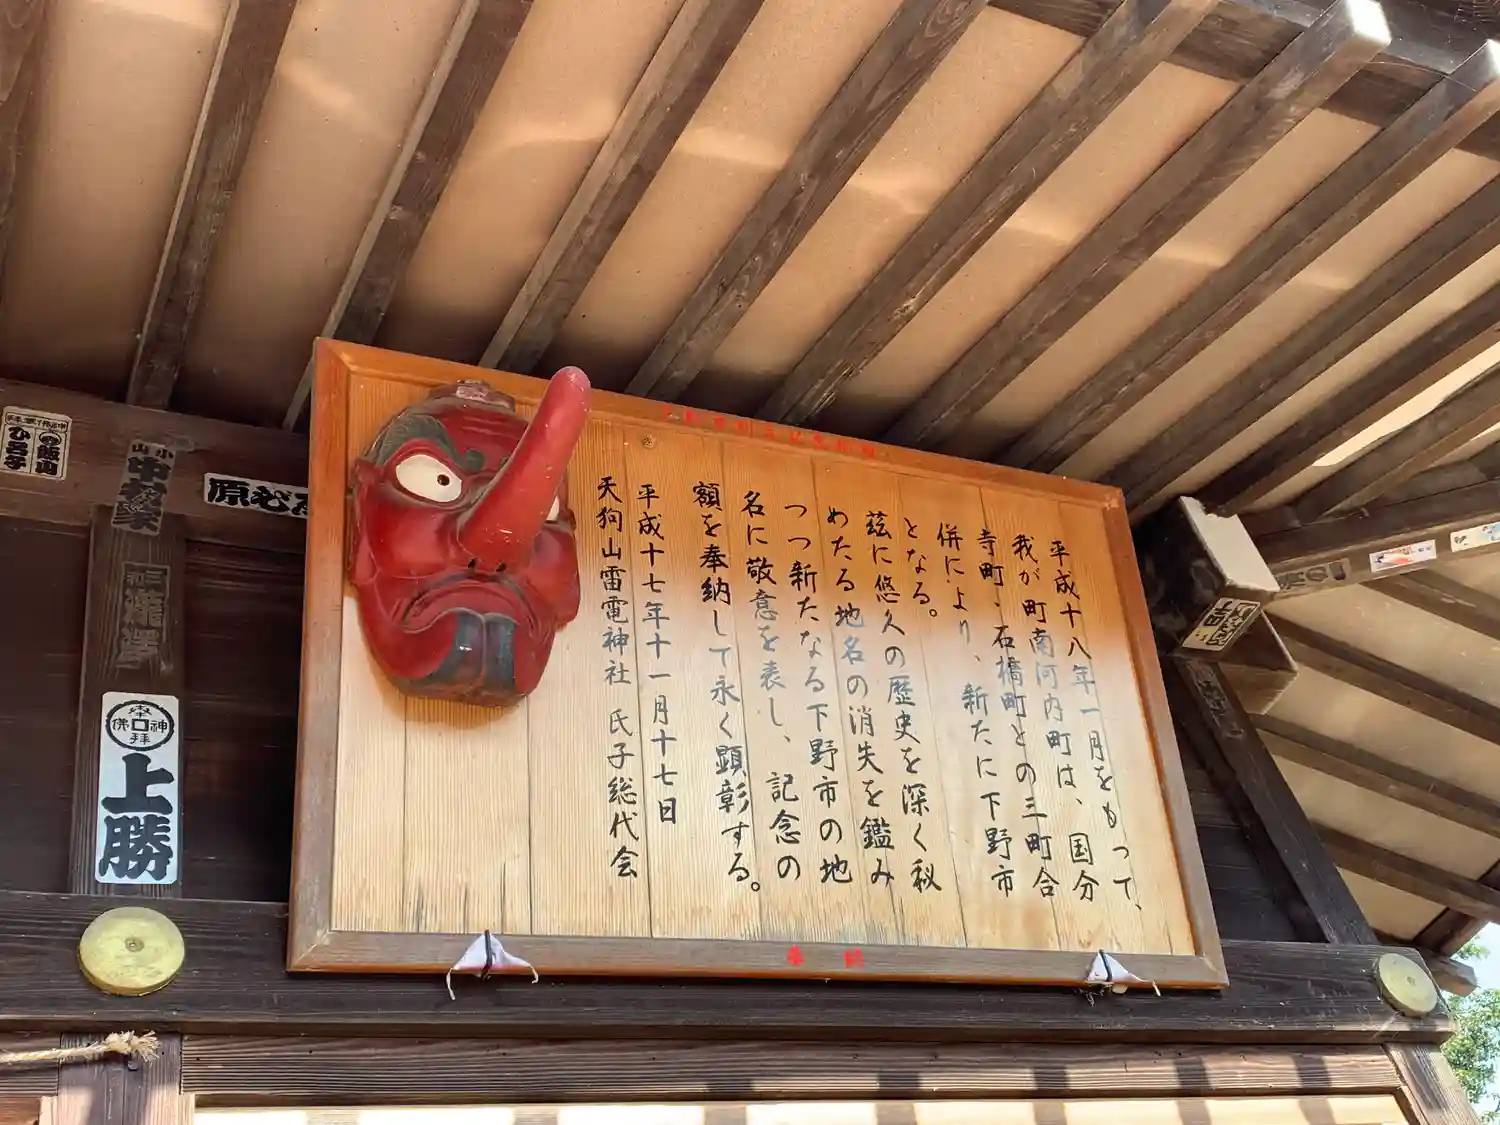 平成十八年一月をもって、
我が町南河内町は、国分
寺町・石橋町との三町合
併により、新たに下野市
となる。
茲に悠久の歴史を深く秘
めたる地名の消失を鑑み
つつ新たなる下野市の地
名に敬意を表し、記念の
額を奉納して永く顕彰する。
平成十七年十一月十七日
天狗山雷電神社 氏子総代会
奉納
神口佛
拝
上勝
小山
中村家
の飯山
ひろ子